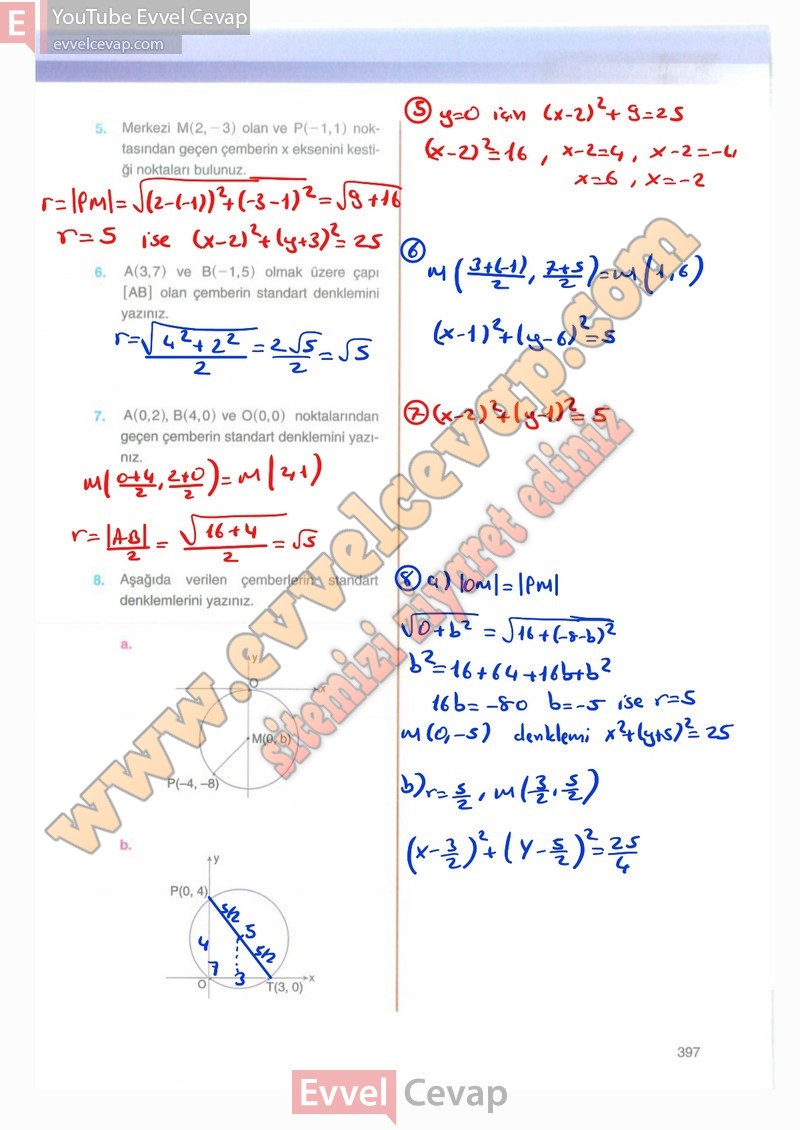 E YouTube Evvel Cevap
evvelcevap.com
5. Merkezi M(2, −3) olan ve P(−1,1) nok-
tasından geçen çemberin x eksenini kesti-
ği noktaları bulunuz.
r=|PM|=√(2-(-1))²+(-3-1)²=√9+16
r=5 ise (x-2)²+(y+3)²=25
6. A(3,7) ve B(−1,5) olmak üzere çapı
[AB] olan çemberin standart denklemini
yazınız.
r=√4²+2²/2=2√5/2=√5
7. A(0,2), B(4,0) ve O(0,0) noktalarından
geçen çemberin standart denklemini yazı-
nız.
M(0+4/2, 2+0/2)=M(2,1)
r=|AB|/2=√16+4/2=√5
8. Aşağıda verilen çemberlerin standart
denklemlerini yazınız.
a.
y
O
x
M(0, b)
P(−4, −8)
b.
y
P(0, 4)
5/2
5
4
5/2
7
3
O
T(3, 0)
x
5 y=0 için (x-2)²+9=25
(x-2)²=16, x-2=4, x-2=-4
x=6, x=-2
6
M(3+(-1)/2, 7+5/2)=M(1,6)
(x-1)²+(y-6)²=5
7 (x-2)²+(y-1)²=5
8 a) |OM|=|PM|
√0+b²=√16+(-8-b)²
b²=16+64+16b+b²
16b=-80 b=-5 ise r=5
M(0,-5) denklemi x²+(y+5)²=25
b) r=5/2, M(3/2, 5/2)
(x-3/2)²+(y-5/2)²=25/4
www.evvelcevap.com
sitemizi ziyaret ediniz.
397
Evvel Cevap